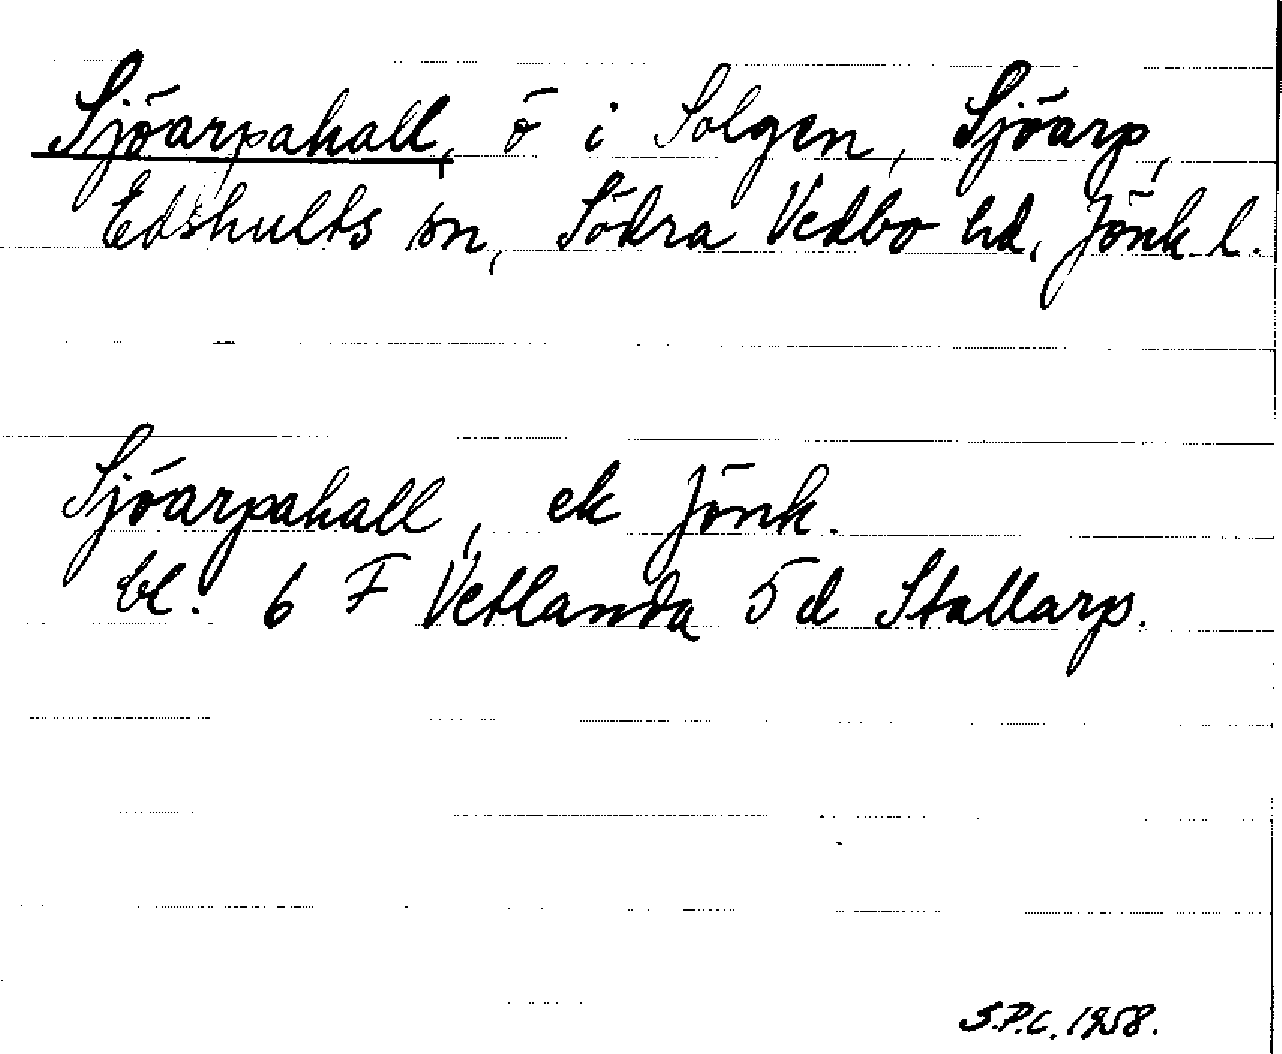 Sjöarpahall, ö i Solgen, Sjöarp,
Edshults sn, Södra Vedbo hd, Jönk. l.
Sjöarpahall, ek Jönk.
bl. 6 F Vetlanda 5 d Stallarp.
S.P.C. 1958.